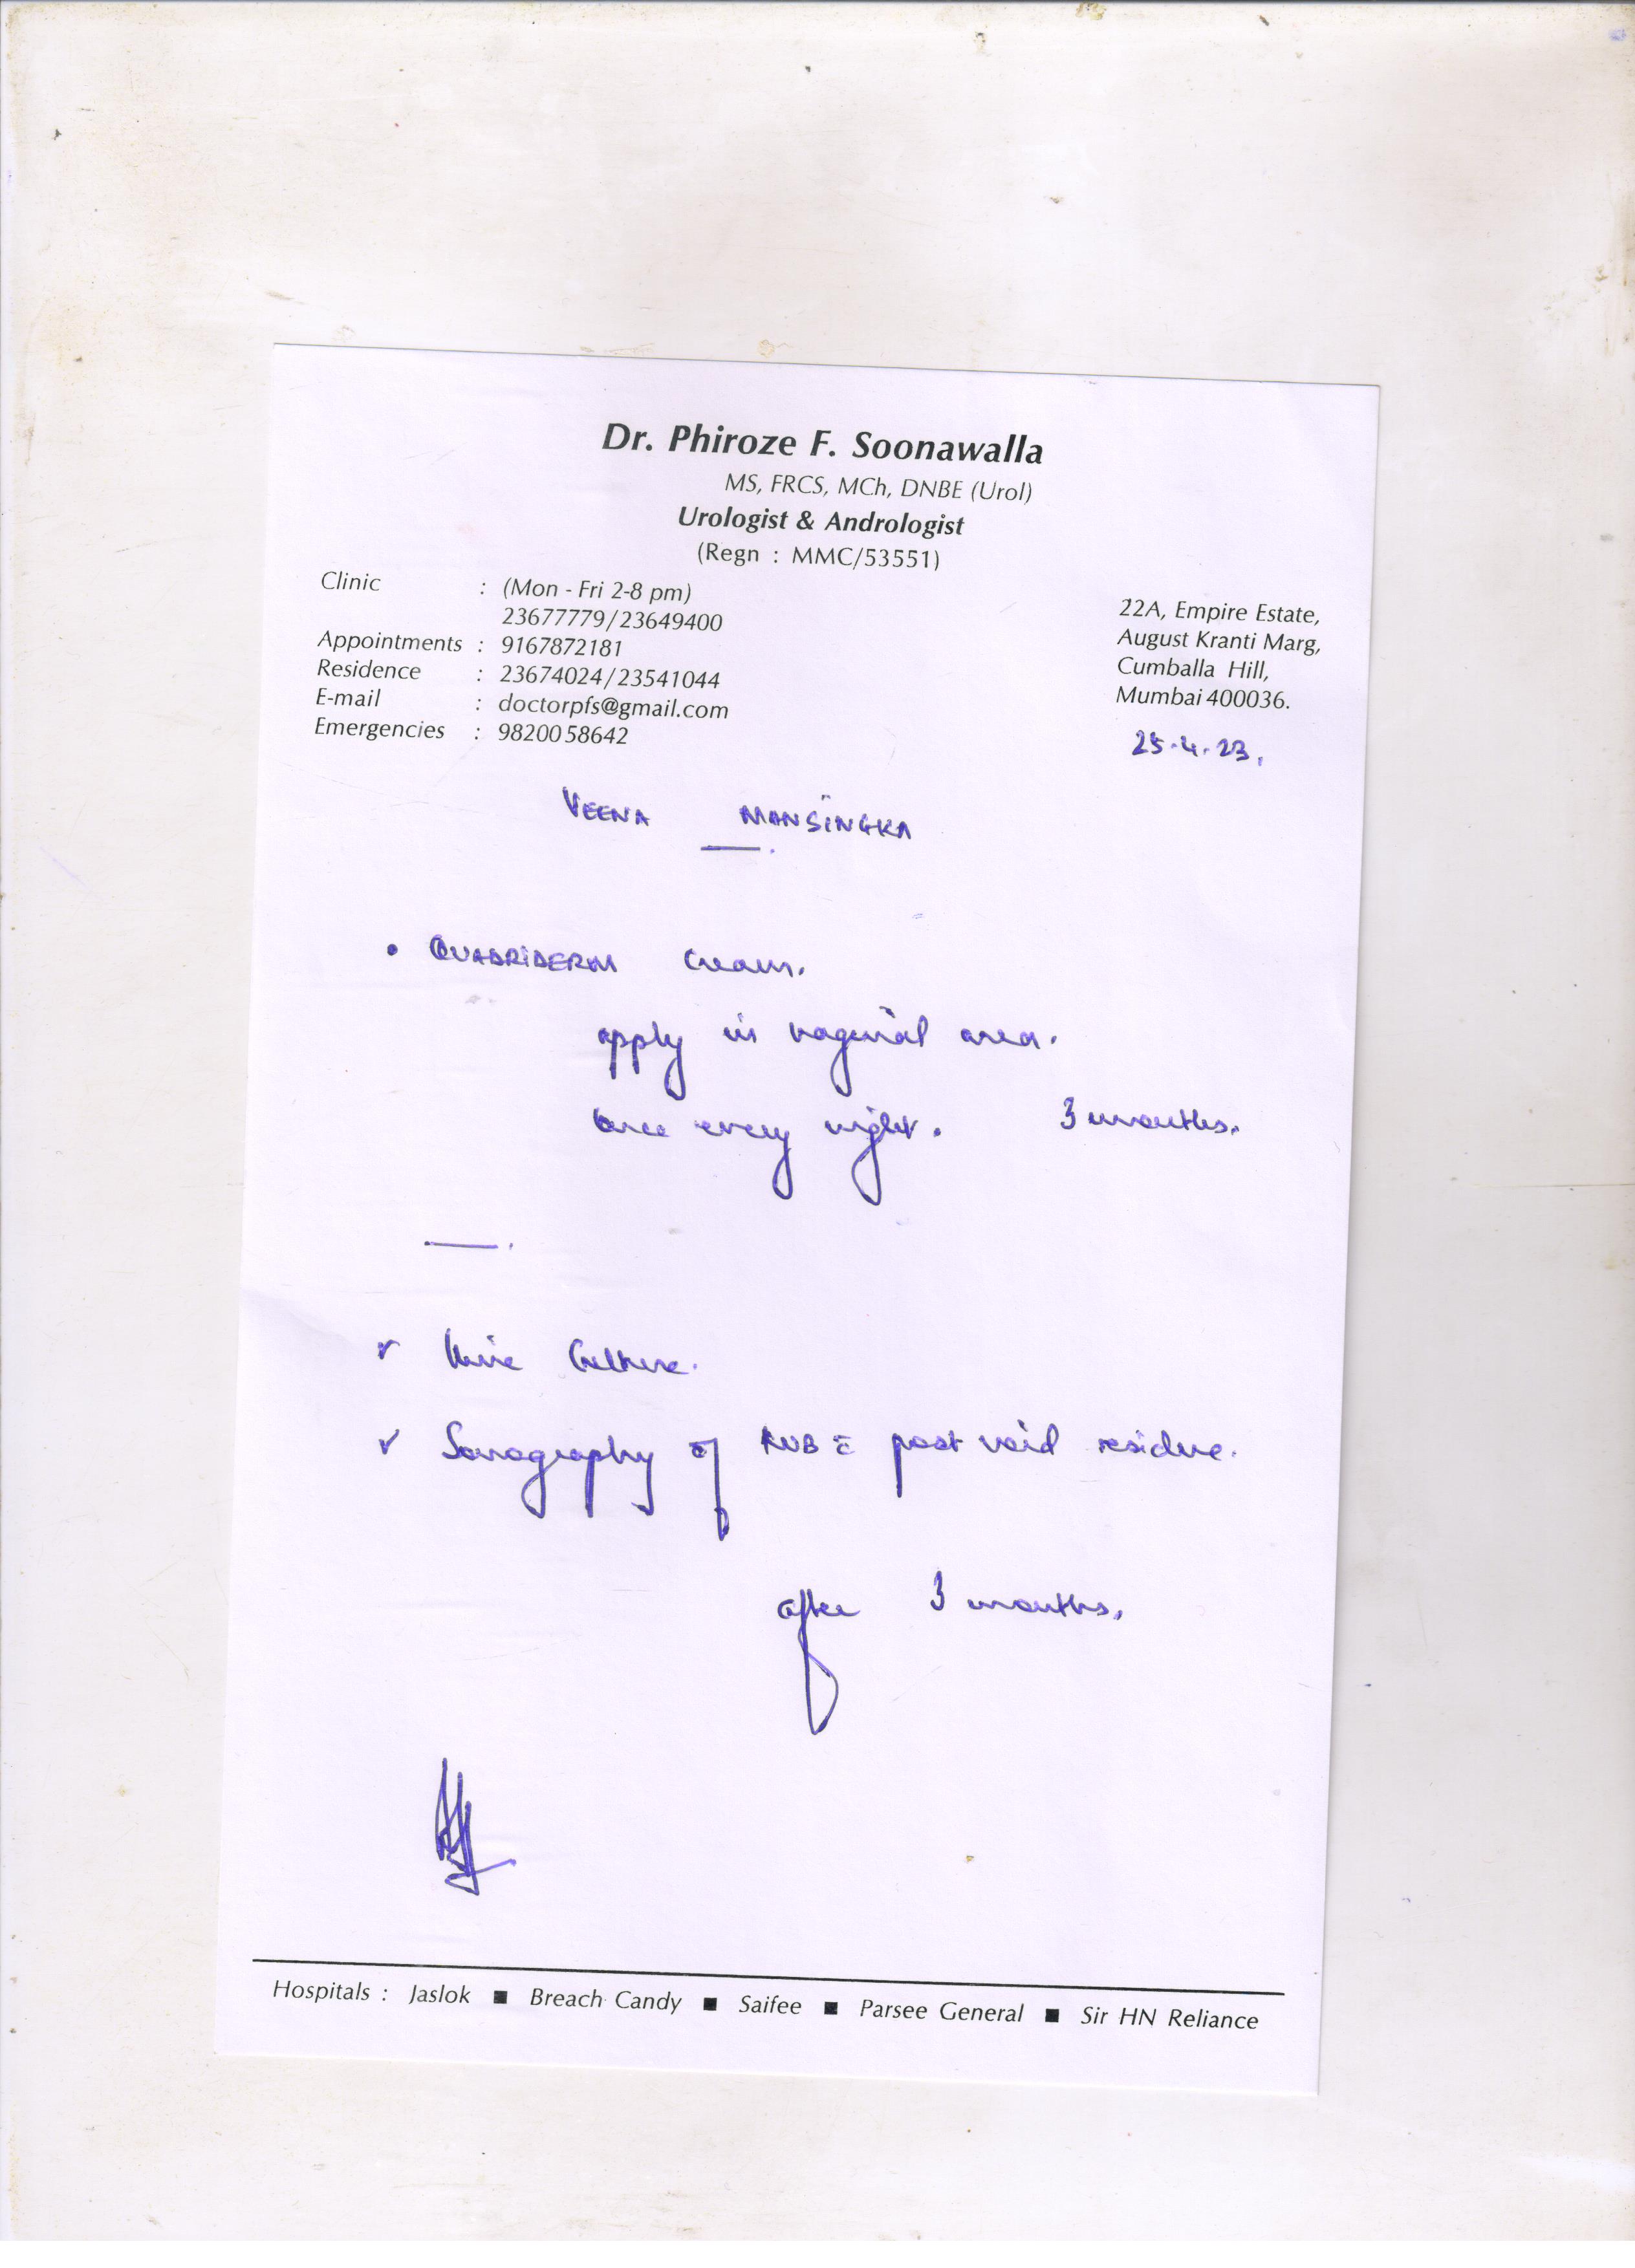 Dr. Phiroze F. Soonawalla
MS, FRCS, MCh, DNBE (Urol)
Urologist & Andrologist
(Regn : MMC/53551)
Clinic : (Mon - Fri 2-8 pm)
23677779/23649400
Appointments : 9167872181
Residence : 23674024/23541044
E-mail : doctorpfs@gmail.com
Emergencies : 9820058642
22A, Empire Estate,
August Kranti Marg,
Cumballa Hill,
Mumbai 400036.
25.4.23.
VEENA MANSINGKA
• QUADRIDERM cream.
apply in vaginal area.
once every night. 3 months.
✓ Urine Culture.
✓ Sonography of KUB c̄ post void residue.
after 3 months.
Hospitals : Jaslok ■ Breach Candy ■ Saifee ■ Parsee General ■ Sir HN Reliance